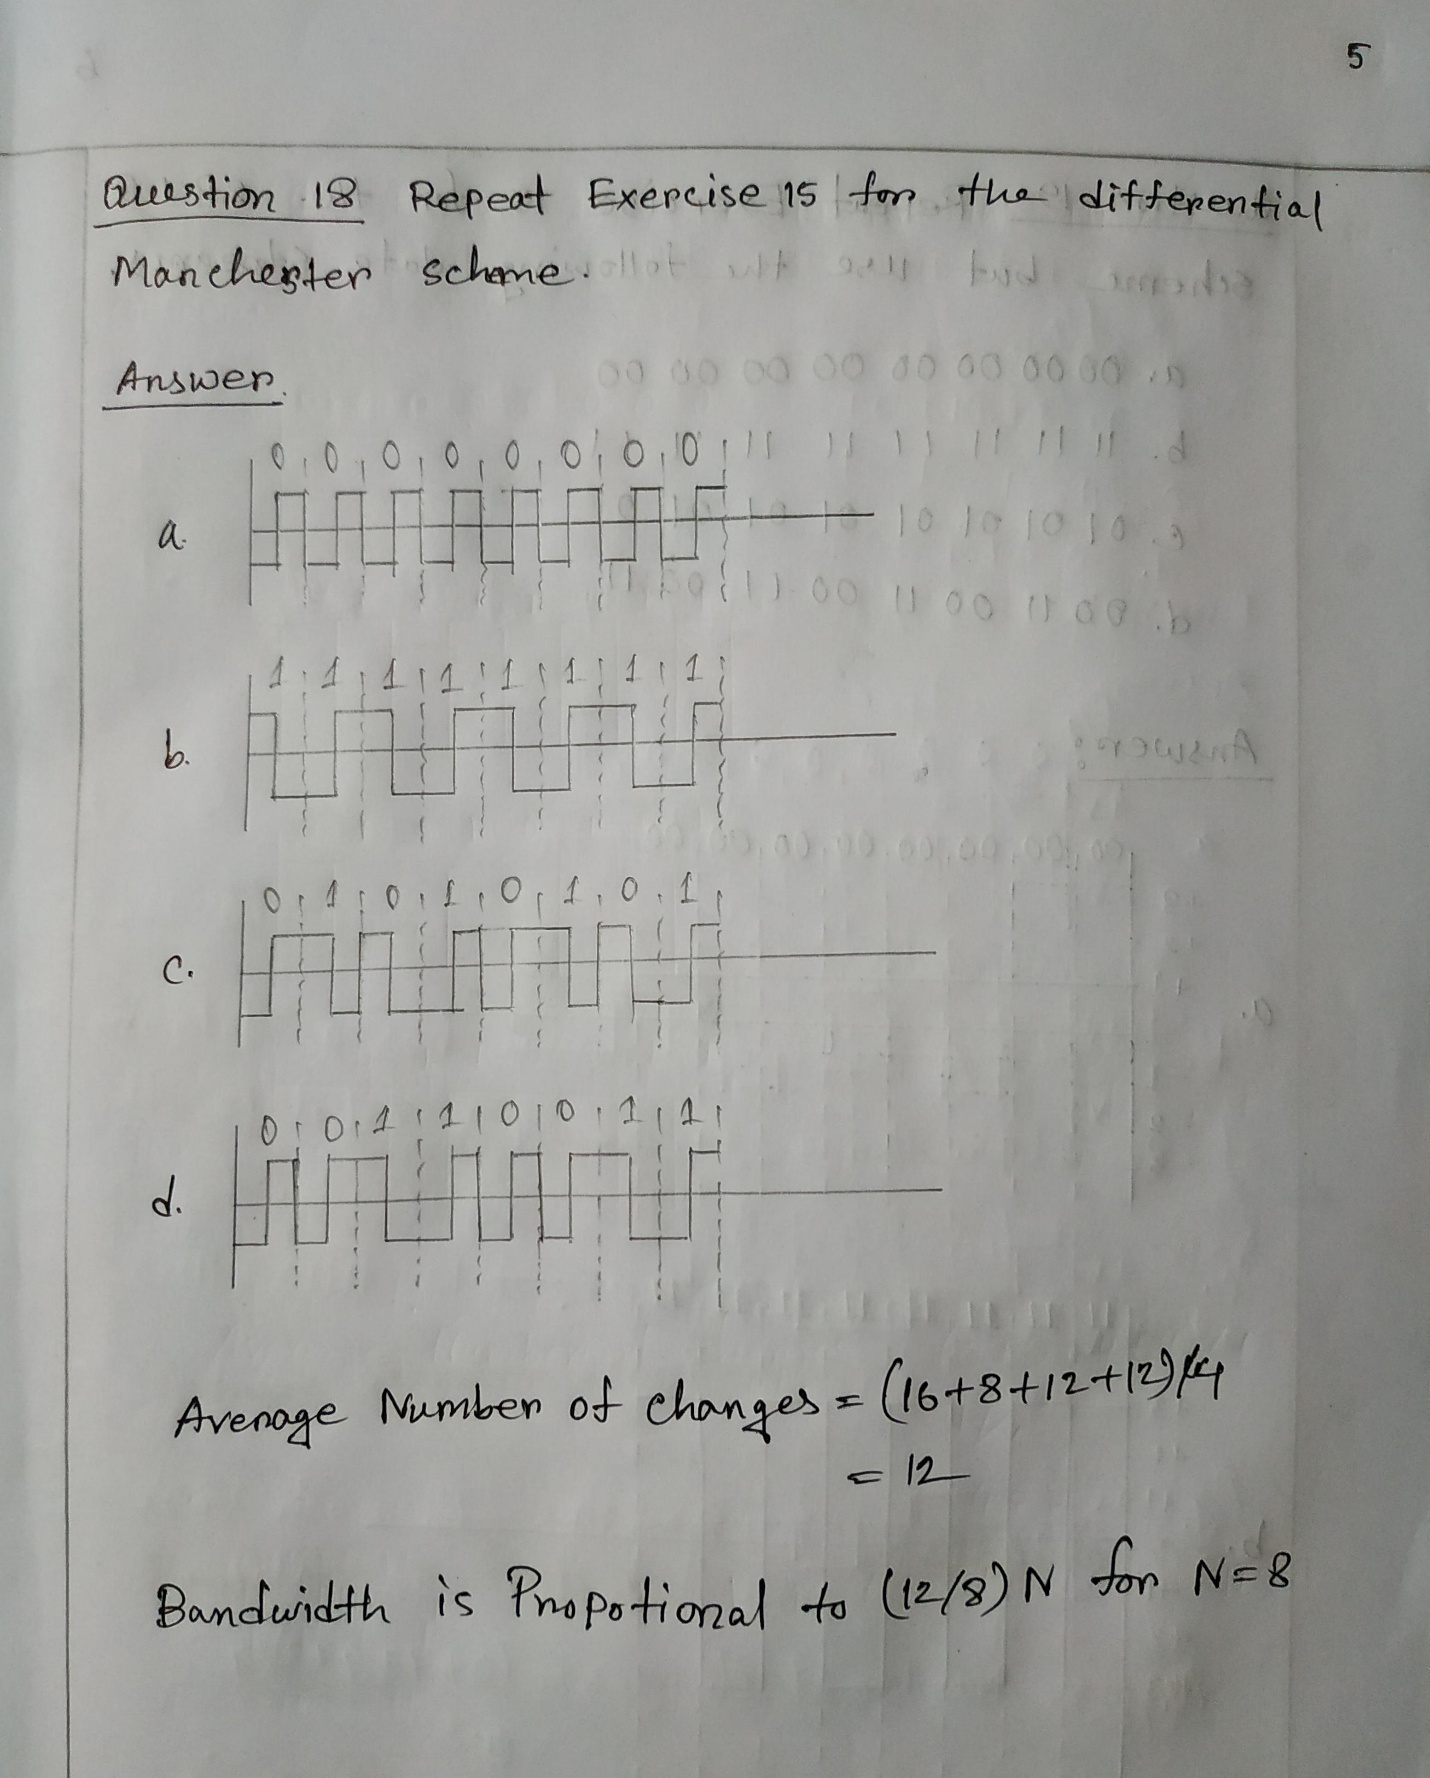 5
Question 18 Repeat Exercise 15 for the differential
Manchester scheme.
Answer.
0 0 0 0 0 0 0 0
a.
1 1 1 1 1 1 1 1
b.
0 1 0 1 0 1 0 1
c.
0 0 1 1 0 0 1 1
d.
Average Number of changes = (16+8+12+12)/4
= 12
Bandwidth is Propotional to (12/8) N for N=8